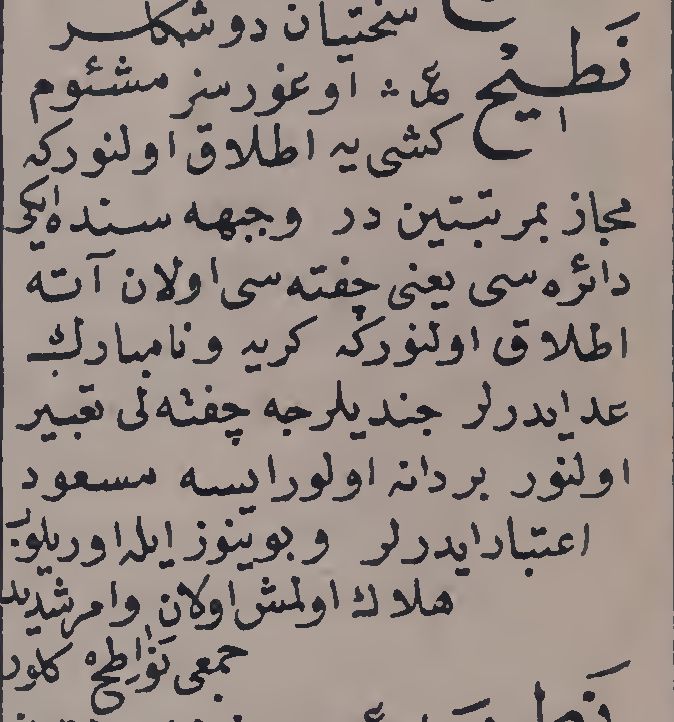 سختيان دوشكلر
نَطِيْح ع م ث اوغورسز مشئوم
كشى يه اطلاق اولنوركه
مجاز بمرتبتين در وجبهه سنده ايكى
دائره سى يعنى چفته سى اولان آته
اطلاق اولنوركه كريه ونامبارك
عد ايدرلر جنديلرجه چفته لى تعبير
اولنور بردانه اولورايسه مسعود
اعتبار ايدرلر وبوينوز ايله اوريلوب
هلاك اولمش اولان وامر شديد
جمعى نَوَاطِحْ كلور